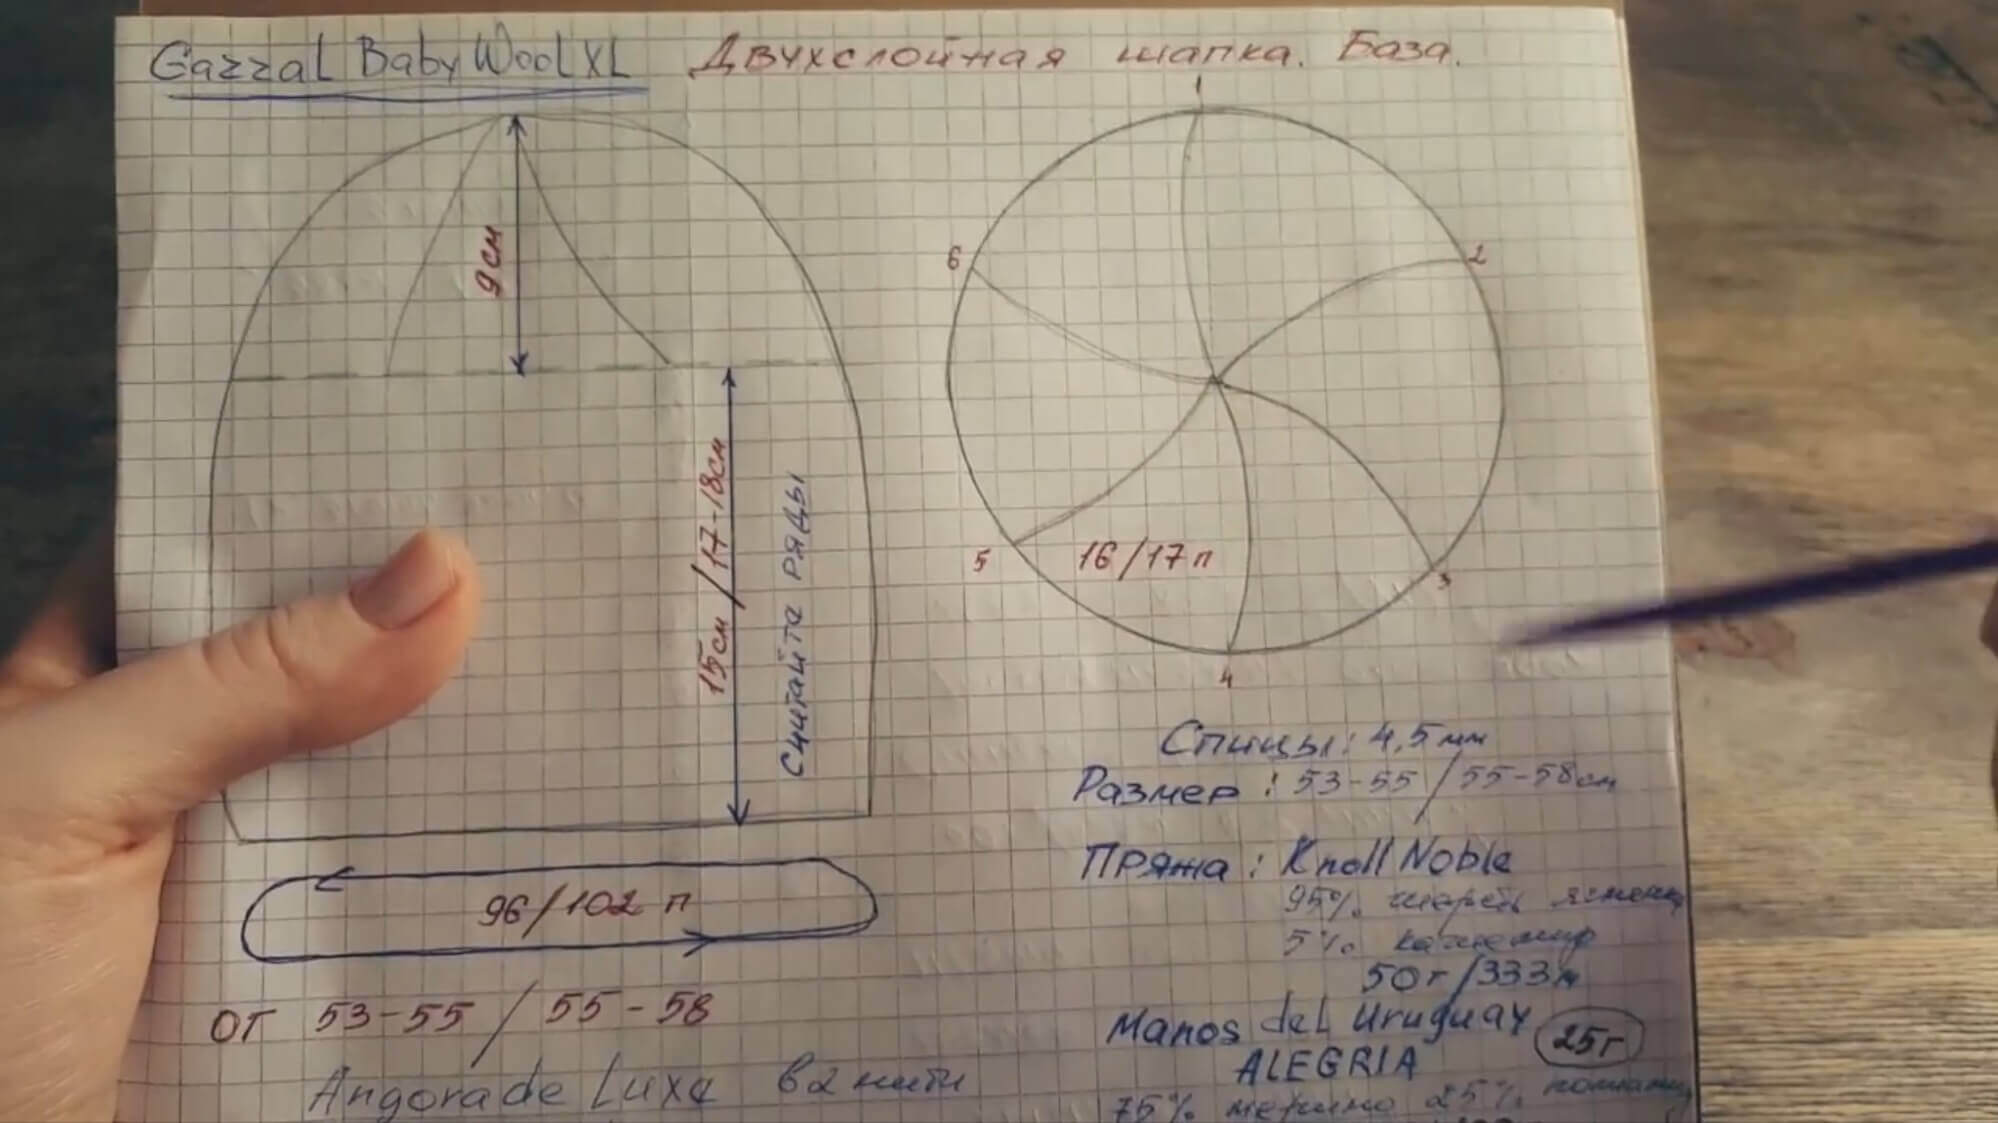 Gazzal Baby Wool XL Двухслойная шапка. База.
9см
15см/17-18см
Считайта ряды
96/102 п
ОГ 53-55 / 55-58
Angora de Luxe в 2 нити
1
2
3
4
5
6
16/17п
Спицы: 4,5мм
Размер: 53-55 / 55-58см
Пряжа: Knoll Noble
95% шерсть ягненка
5% кашемир
50г/333м
Manos del Uruguay
ALEGRIA 25г
75% мерино 25% полиамид